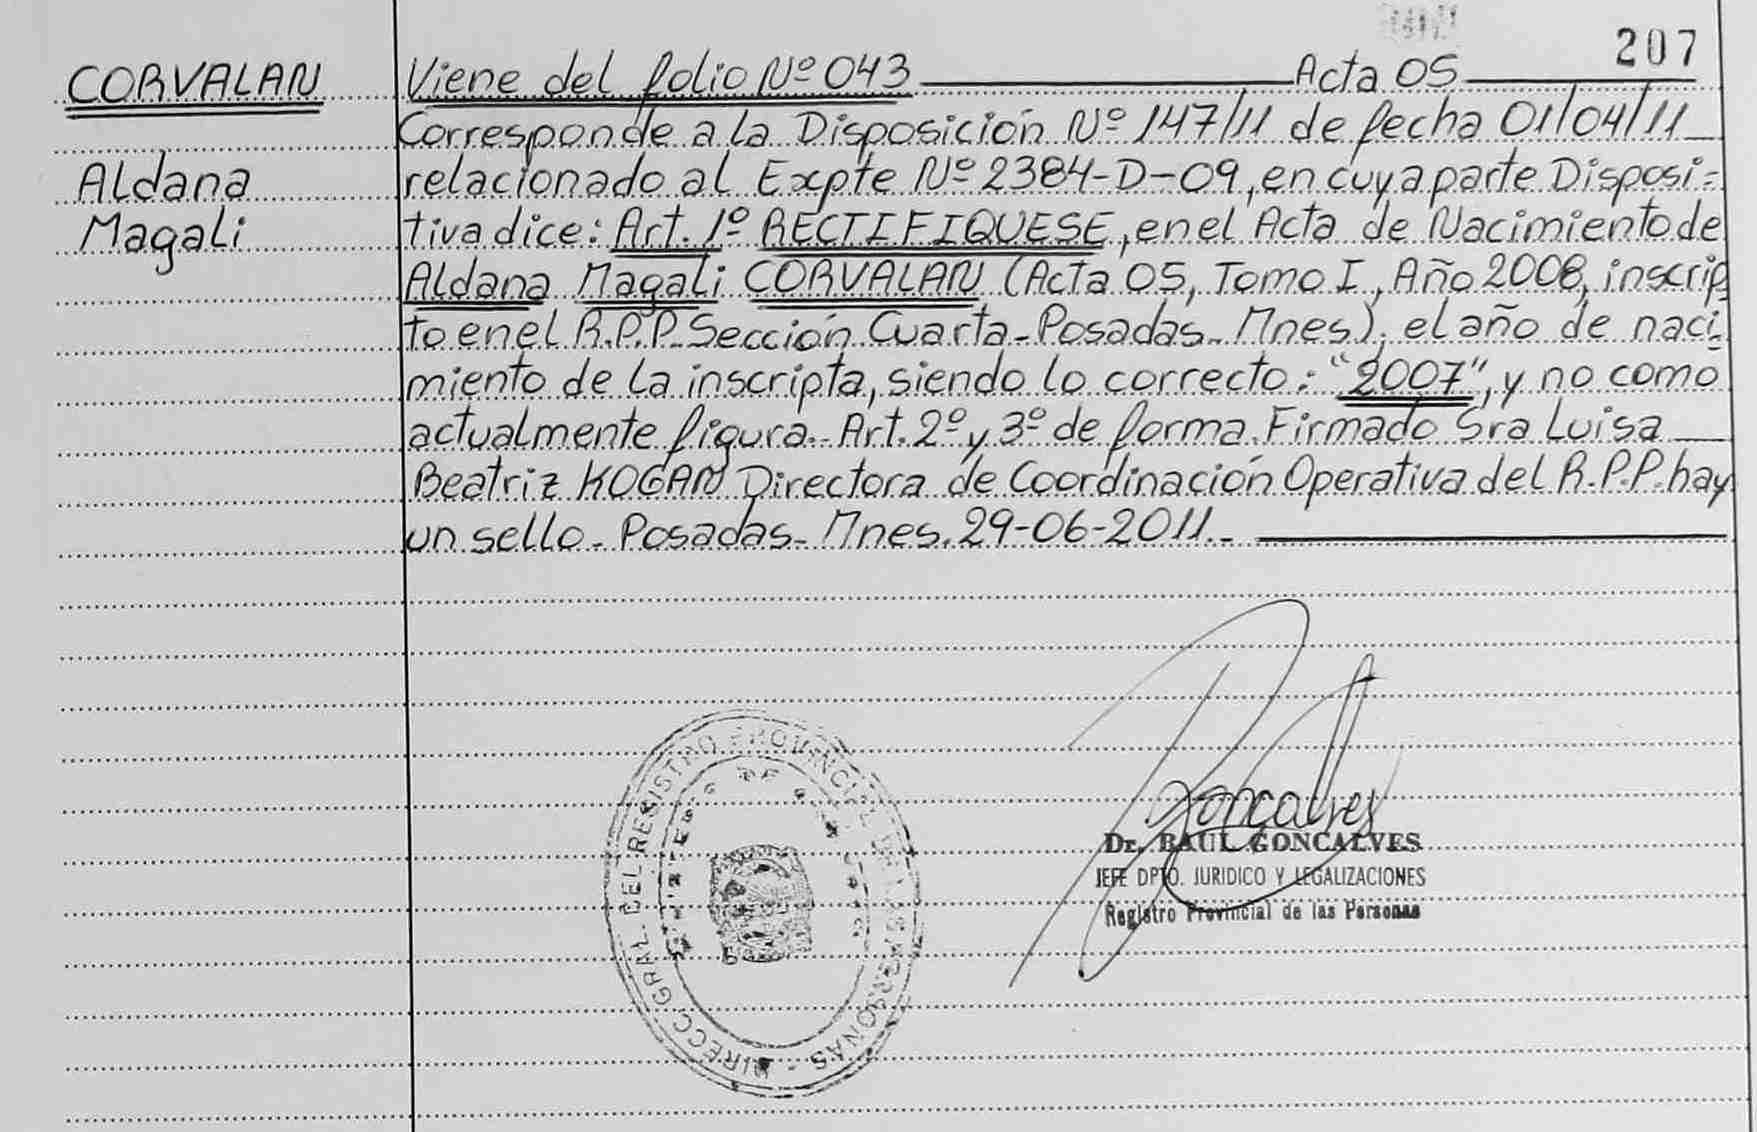 207
CORVALAN
Aldana
Magali
Viene del folio Nº 043 Acta 05
Corresponde a la Disposición Nº 147/11 de fecha 01/04/11
relacionado al Expte Nº 2384-D-09, en cuya parte Disposi-
tiva dice: Art. 1º RECTIFIQUESE, en el Acta de Nacimiento de
Aldana Magali CORVALAN (Acta 05, Tomo I, Año 2008, inscrip
to en el R.P.P. Sección Cuarta-Posadas-Mnes). el año de naci-
miento de la inscripta, siendo lo correcto: "2007", y no como
actualmente figura.- Art. 2º y 3º de forma. Firmado Sra Luisa
Beatriz KOGAN Directora de Coordinación Operativa del R.P.P. hay
un sello- Posadas- Mnes. 29-06-2011.-
Goncalves
Dr. RAUL GONCALVES
JEFE DPTO. JURIDICO Y LEGALIZACIONES
Registro Provincial de las Personas
DIRECC. GRAL. DEL REGISTRO PROVINCIAL DE LAS PERSONAS